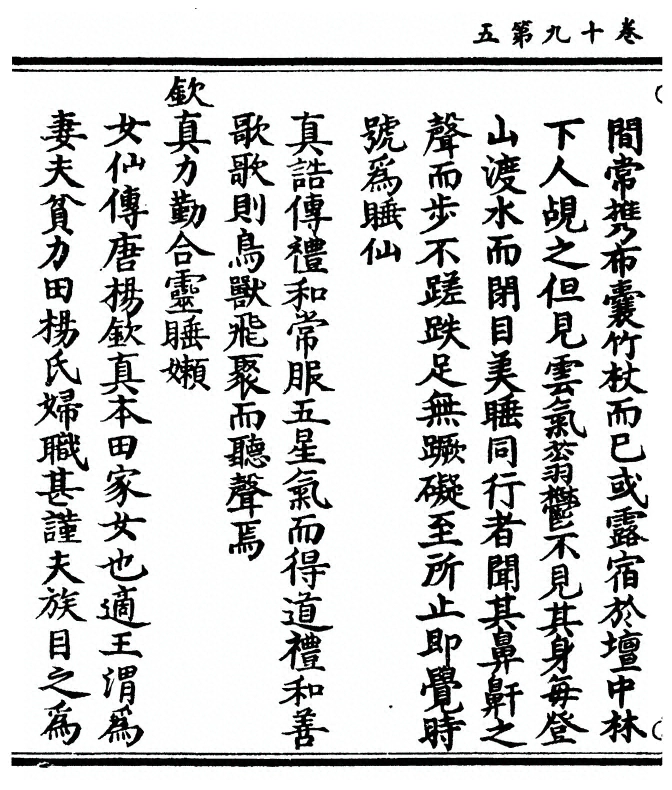 卷十九第五
間常携布囊竹杖而已或露宿於壇中林
下人覘之但見雲氣蓊鬱不見其身每登
山渡水而閉目美睡同行者聞其鼻鼾之
聲而步不蹉跌足無蹶礙至所止即覺時
號爲睡仙
真誥傳禮和常服五星氣而得道禮和善
歌歌則鳥獸飛聚而聽聲焉
欽真力勤合靈睡嬾
女仙傳唐楊欽真本田家女也適王渭爲
妻夫貧力田楊氏婦職甚謹夫族目之爲